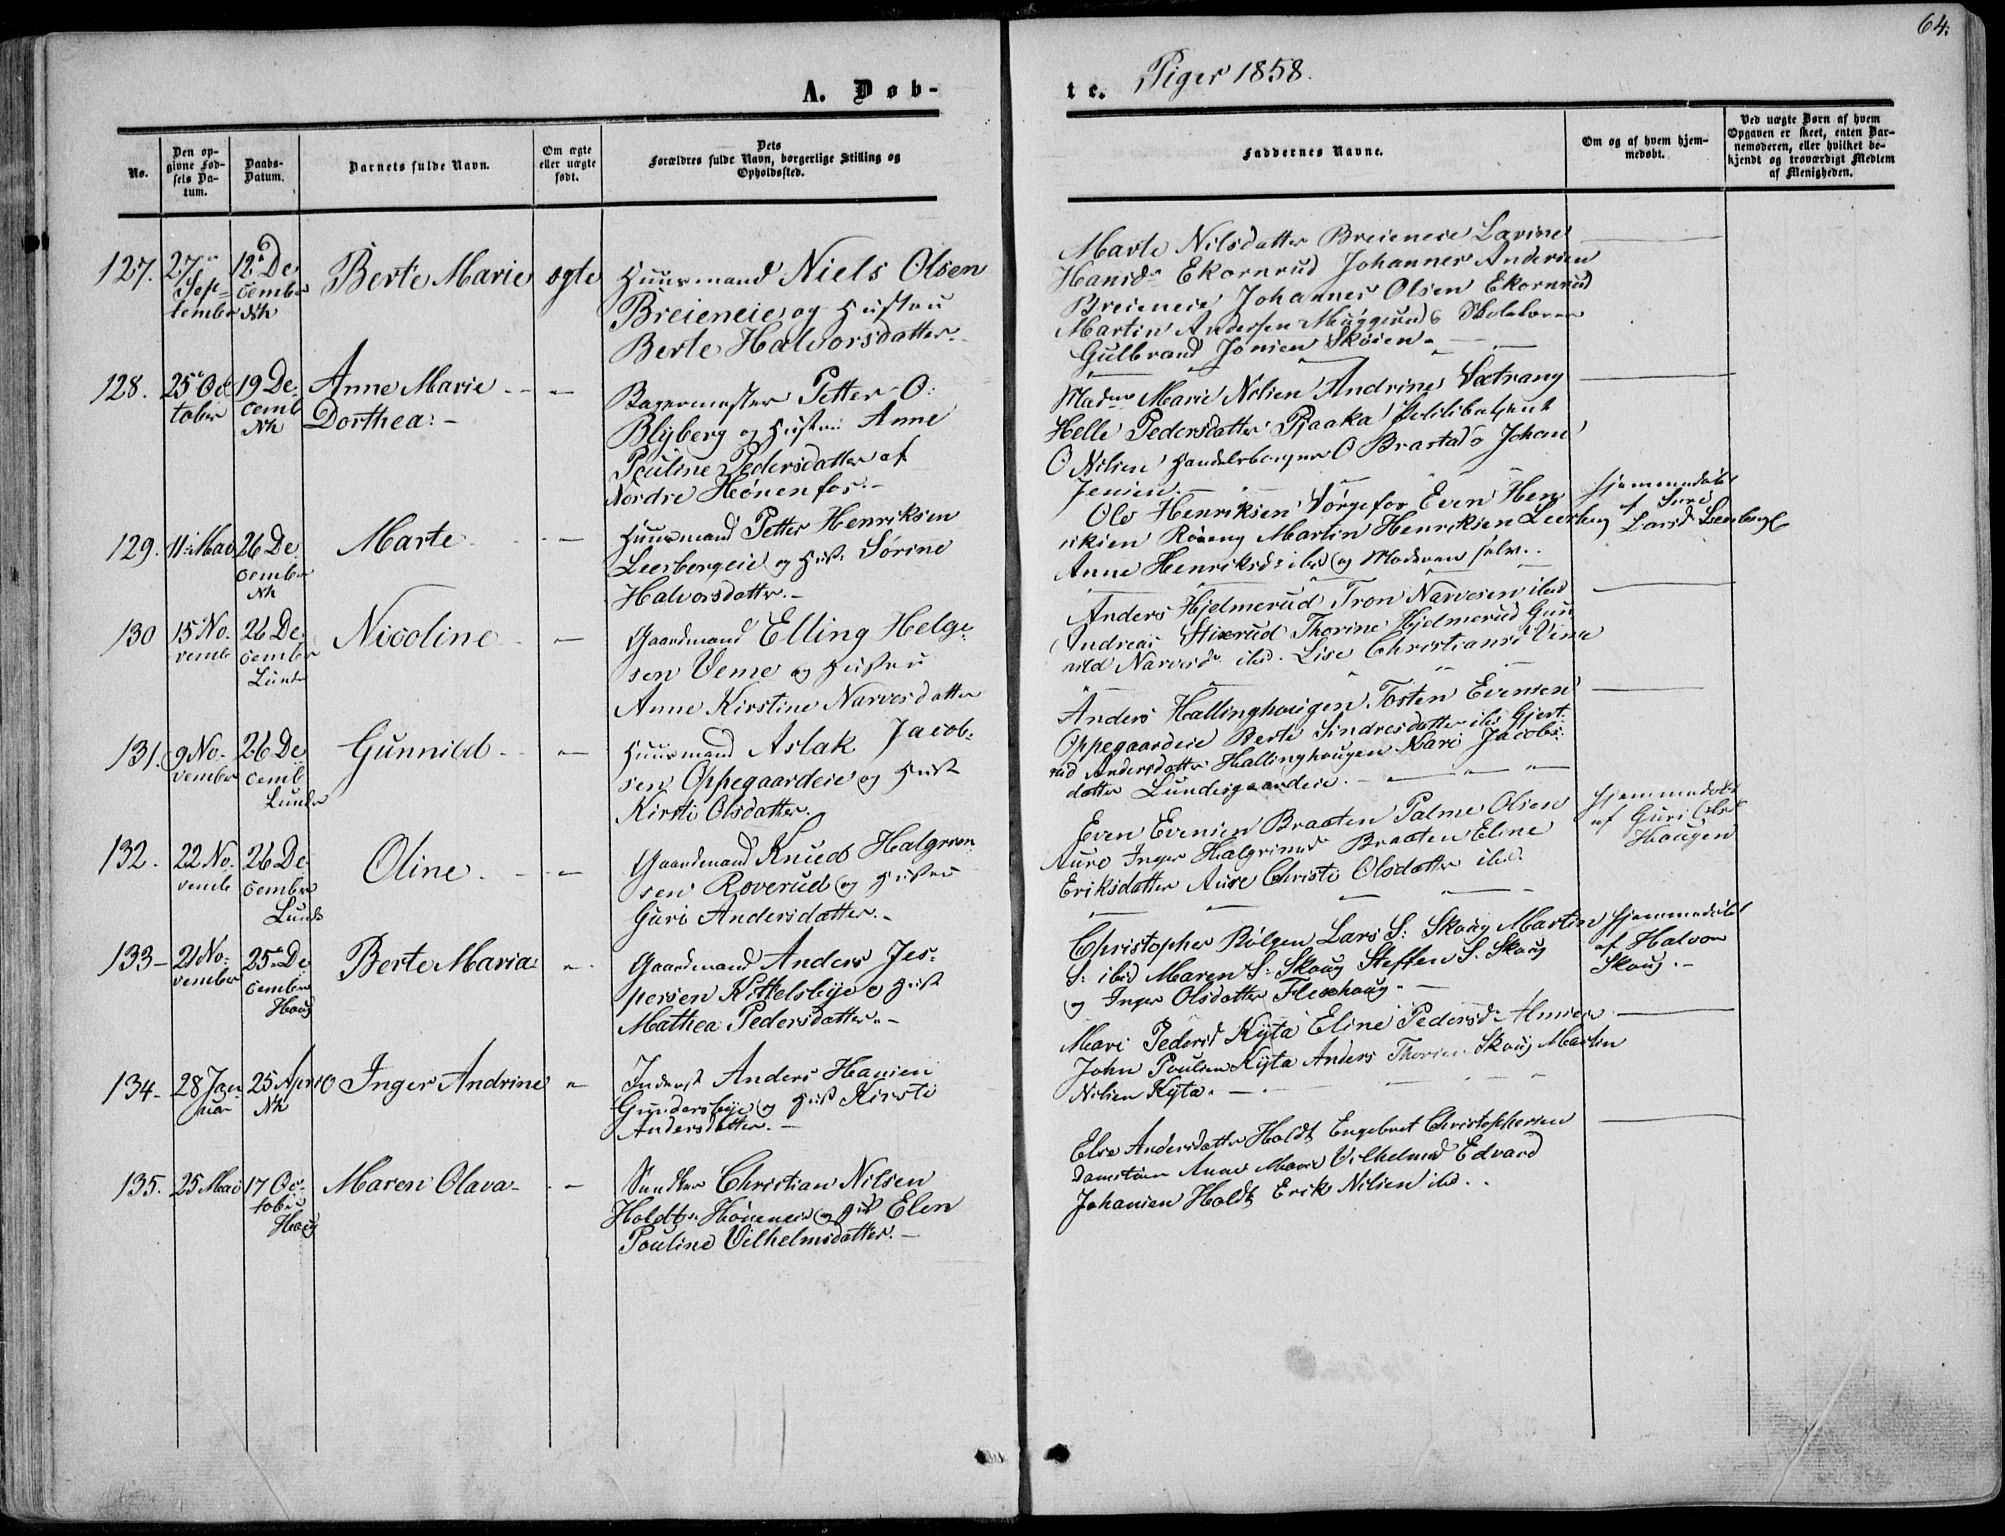 64.
A. Døb-
te. Piger 1858.
No.
Den op-
givne Fød-
sels Da-
tum.
Daabs-
Datum.
Barnets fulde Navn.
Om ægte
eller uægte
født.
Dets
Forældres fulde Navn, borgerlige Stilling og
Opholdssted.
Faddernes Navne.
Om og af hvem hjem-
medøbt.
Ved uægte Børn af hvem
Opgaven er skeet, enten Bar-
nemoderen, eller hvilket be-
kjendt og troværdigt Medlem
af Menigheden.
127.
27
Sep-
tember
12 De
cember
Nh
Berte Marie
ægte
Huusmand Niels Olsen
Breieneie og Hustru
Berte Halvorsdatter.
Marte Nilsdatter Breieneie Lavine
Hansd Ekornrud Johannes Andersen
Breieneie Johannes Olsen Ekornrud
Martin Andersen Muggerud
Gulbrand Jonsen Skøien.
128.
25 Oc
tober
19 De
cemb
Nh
Anne Marie
Dorthea.
Bagermester Petter O:
Blyberg og Hustru Anne
Pouline Pedersdatter af
Nordre Hønenfos.
Marie Nilsen Andrine Sætrang
Helle Pedersdatter Pjaaka
O Nilsen O Brastad Johan
Jensen.
129.
11 Mai
26 De
cember
Nh
Marte
Huusmand Petter Henriksen
Leerbergeie og Hust Sørine
Halvorsdatter.
Ole Henriksen Sørgefos Even Hen
riksen Røseng Martin Henriksen Leerberg
Anne Henriksd ibid og Moderen selv.
Hjemmedøbt
af
Larsd Leerberg
130
15 No
vemb
26 De
cember
Lunder
Nicoline
Gaardmand Elling Helge-
sen Veme og Hustru
Anne Kirstine Narvesdatter
Anders Hjelmerud Tron Narvesen ibid
Andreas Stixrud Thorine Hjelmerud Gun
nild Narvesd ibid. Lise Christiansd Veme
131.
9 No-
vember
26 De
cemb
Lunder
Gunnild
Huusmand Aslak Jacob-
sen Oppegaardeie og Hust
Kirsti Olsdatter.
Anders Hallinghaugen Tosten Evensen
Oppegaardeie Berte Sindresdatter ibid Gjert-
rud Andersdatter Hallinghaugen Kari Jacobs-
datter Lundesgaardeie.
132.
22 No-
vemb
26 De
cember
Lunde
Oline
Gaardmand Knud Halgrim
sen Roverud og Hustru
Guri Andersdatter.
Even Evensen Braaten Palme Olsen
Aure Inger Halgrimsd Braaten Eline
Eriksdatter Aure Christi Olsdatter ibid
Hjemmedøbt
af Guri Olsd
Haugen
133
21 No-
vember
25 De
cember
Haug
Berte Maria
Gaardmand Anders Jes-
persen Kittelsbye og Hust
Mathea Pedersdatter.
Christopher Bølgen Lars S: Skoug Martin
S: ibid Maren S: Skoug Steffen S. Skoug
og Inger Olsdatter Flexhaug.
Hjemmedøbt
af Halvor
Skoug.
134
28 Jan
uar
25 April
Nh
Inger Andrine
Inderst Anders Hansen
Gundersbye og Hust Kirsti
Andersdatter.
Mari Pedersd Kyta Eline Pedersd
John Poulsen Kyta Anders Skoug Martin
Nilsen Kyta.
135.
25 Mai
17 Oc-
tober
Haug
Maren Olava
Christian Nilsen
Holdt Høneneie og Hust Elen
Pouline Vilhelmsdatter.
Else Andersdatter Holdt Engebret Christophersen
Damstien Anne Marie Vilhelmsd Edvard
Johansen Holdt Erik Nilsen ibd.